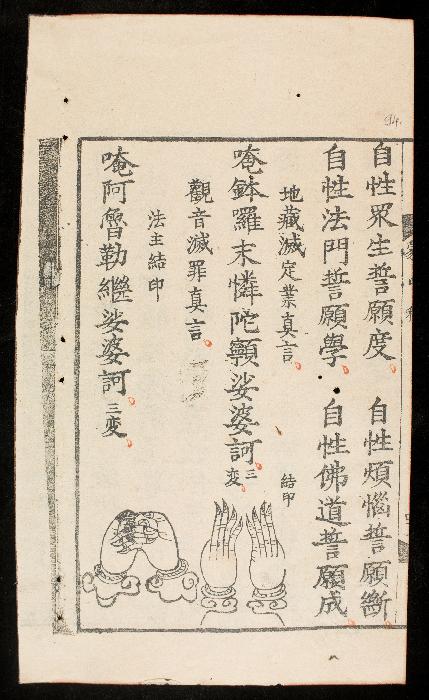 自性眾生誓願度 自性煩惱誓願斷
自性法門誓願學 自性佛道誓願成
地藏滅定業真言 結印
唵鉢羅末憐陀顙娑婆訶三変
觀音滅罪真言
法主結印
唵阿魯勒繼娑婆訶三変
94.